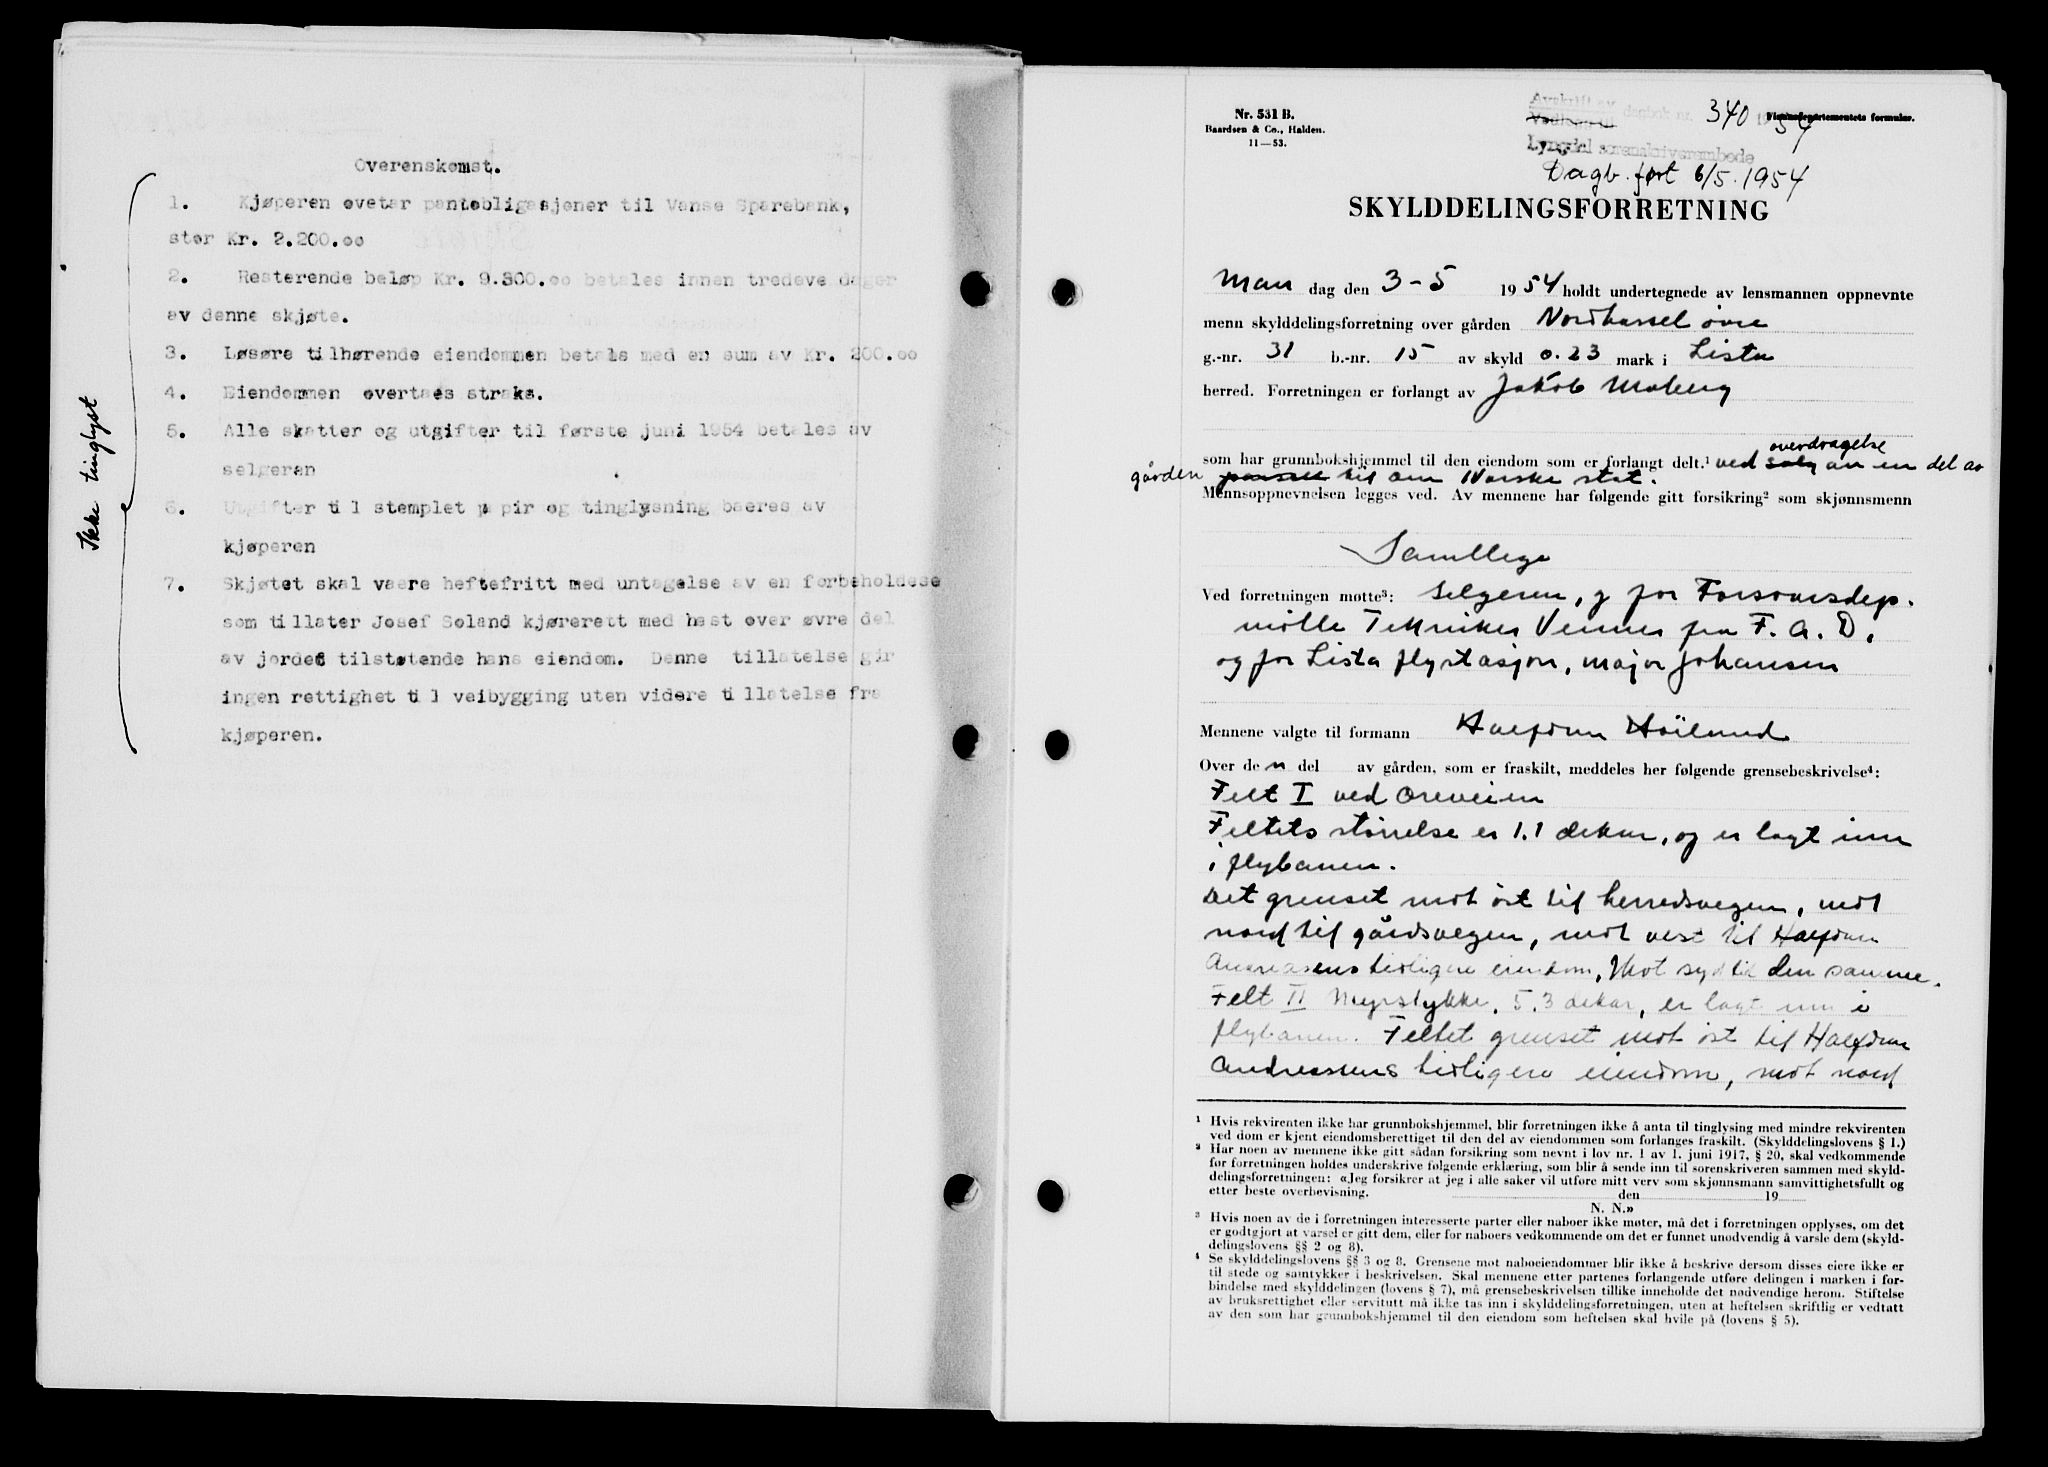 Overenskomst.
1. Kjøperen overtar panteobligasjoner til Vanse Sparebank,
stor Kr. 2.200.oo
2. Resterende beløp Kr. 9.300.oo betales innen tredeve dager
av denne skjøte.
3. Løsøre tilhørende eiendommen betals med en sum av Kr. 200.oo
4. Eiendommen overtaes straks.
5. Alle skatter og utgifter til første juni 1954 betales av
selgeran
6. Utgifter til stemplet papir og tinglysning baeres av
kjøperen
7. Skjøtet skal vaere heftefritt med untagelse av en forbeholdese
som tillater Josef Soland kjørerett med hest over øvre del
av jordet tilstøtende hans eiendom. Denne tillatelse gir
ingen rettighet til veibygging uten videre tillatelse fra
kjøperen.
Ikke tinglyst
Nr. 531 B.
Baardsen & Co., Halden.
11—53.
Avskrift av
Vedlegg til
dagbok nr. 340 1954
Finansdepartementets formular.
Lyngdal sorenskriverembede
Dagb. ført 6/5. 1954
SKYLDDELINGSFORRETNING
Man dag den 3-5 1954 holdt undertegnede av lensmannen oppnevnte
menn skylddelingsforretning over gården Nordhassel øvre
g.-nr. 31 b.-nr. 15 av skyld 0.23 mark i Lista
herred. Forretningen er forlangt av Jakob Moberg
overdragelse
som har grunnbokshjemmel til den eiendom som er forlangt delt.¹ ved salg av en del av
gården parsell til den Norske stat.
Mennsoppnevnelsen legges ved. Av mennene har følgende gitt forsikring² som skjønnsmenn
Samtlige
Ved forretningen møtte³: selgeren, og for Forsvarsdep.
møtte Tekniker Venner fra F.A.D.
og for Lista flystasjon, major Johansen
Mennene valgte til formann Halfdan Høiland
Over den del av gården, som er fraskilt, meddeles her følgende grensebeskrivelse⁴:
Felt I ved Oreveien
Feltets størrelse er 1.1 dekar, og er lagt inn
i flybanen.
Det grenset mot øst til herredsvegen, mot
nord til gårdsvegen, mot vest til Halfdan
Andreasens tidligere eiendom, Mot syd til den samme.
Felt II Myrstykke, 5.3 dekar, er lagt inn i
flybanen. Feltet grenset mot øst til Halfdan
Andreassens tidligere eiendom, mot nord
¹ Hvis rekvirenten ikke har grunnbokshjemmel, blir forretningen ikke å anta til tinglysing med mindre rekvirenten
ved dom er kjent eiendomsberettiget til den del av eiendommen som forlanges fraskilt. (Skylddelingslovens § 1.)
² Har noen av mennene ikke gitt sådan forsikring som nevnt i lov nr. 1 av 1. juni 1917, § 20, skal vedkommende
før forretningen holdes underskrive følgende erklæring, som blir å sende inn til sorenskriveren sammen med skyld-
delingsforretningen: «Jeg forsikrer at jeg i alle saker vil utføre mitt verv som skjønnsmann samvittighetsfullt og
etter beste overbevisning. den 19
N. N.»
³ Hvis noen av de i forretningen interesserte parter eller naboer ikke møter, må det i forretningen opplyses, om det
er godtgjort at varsel er gitt dem, eller for naboers vedkommende om det er funnet unødvendig å varsle dem (skyld-
delingslovens §§ 2 og 8).
⁴ Se skylddelingslovens §§ 3 og 8. Grensene mot naboeiendommer blir ikke å beskrive dersom disses eiere ikke er
til stede og samtykker i beskrivelsen. Skal mennene etter partenes forlangende utføre delingen i marken i for-
bindelse med skylddelingen (lovens § 7), må grensebeskrivelsen tillike inneholde det nødvendige herom. Stiftelse
av bruksrettighet eller servitutt må ikke tas inn i skylddelingsforretningen, uten at heftelsen skriftlig er vedtatt
av den som har grunnbokshjemmel til den eiendom som heftelsen skal hvile på (lovens § 5).